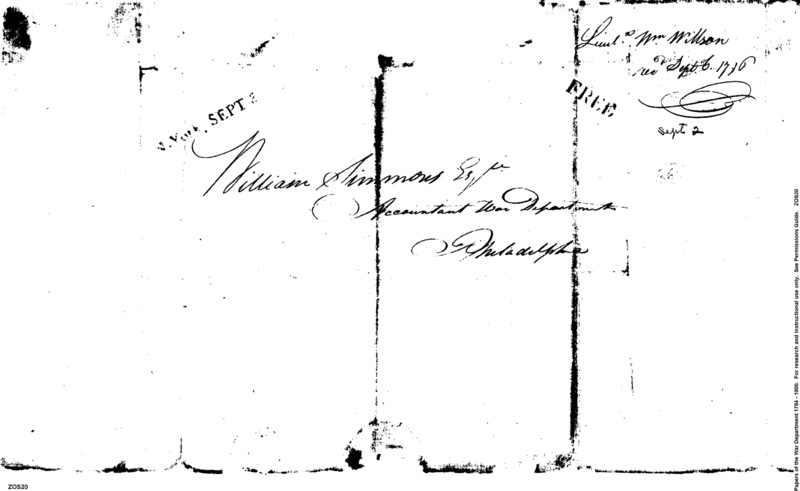 Lieut. Wm Willson
recd Sept 6. 1796
sept 2
FREE
N. York, SEPT 3
William Simmons Esqr
Accountant War Department
Philadelphia
Papers of the War Department 1784 - 1800. For research and instructional use only. See Permissions Guide. ZOS20
ZOS20